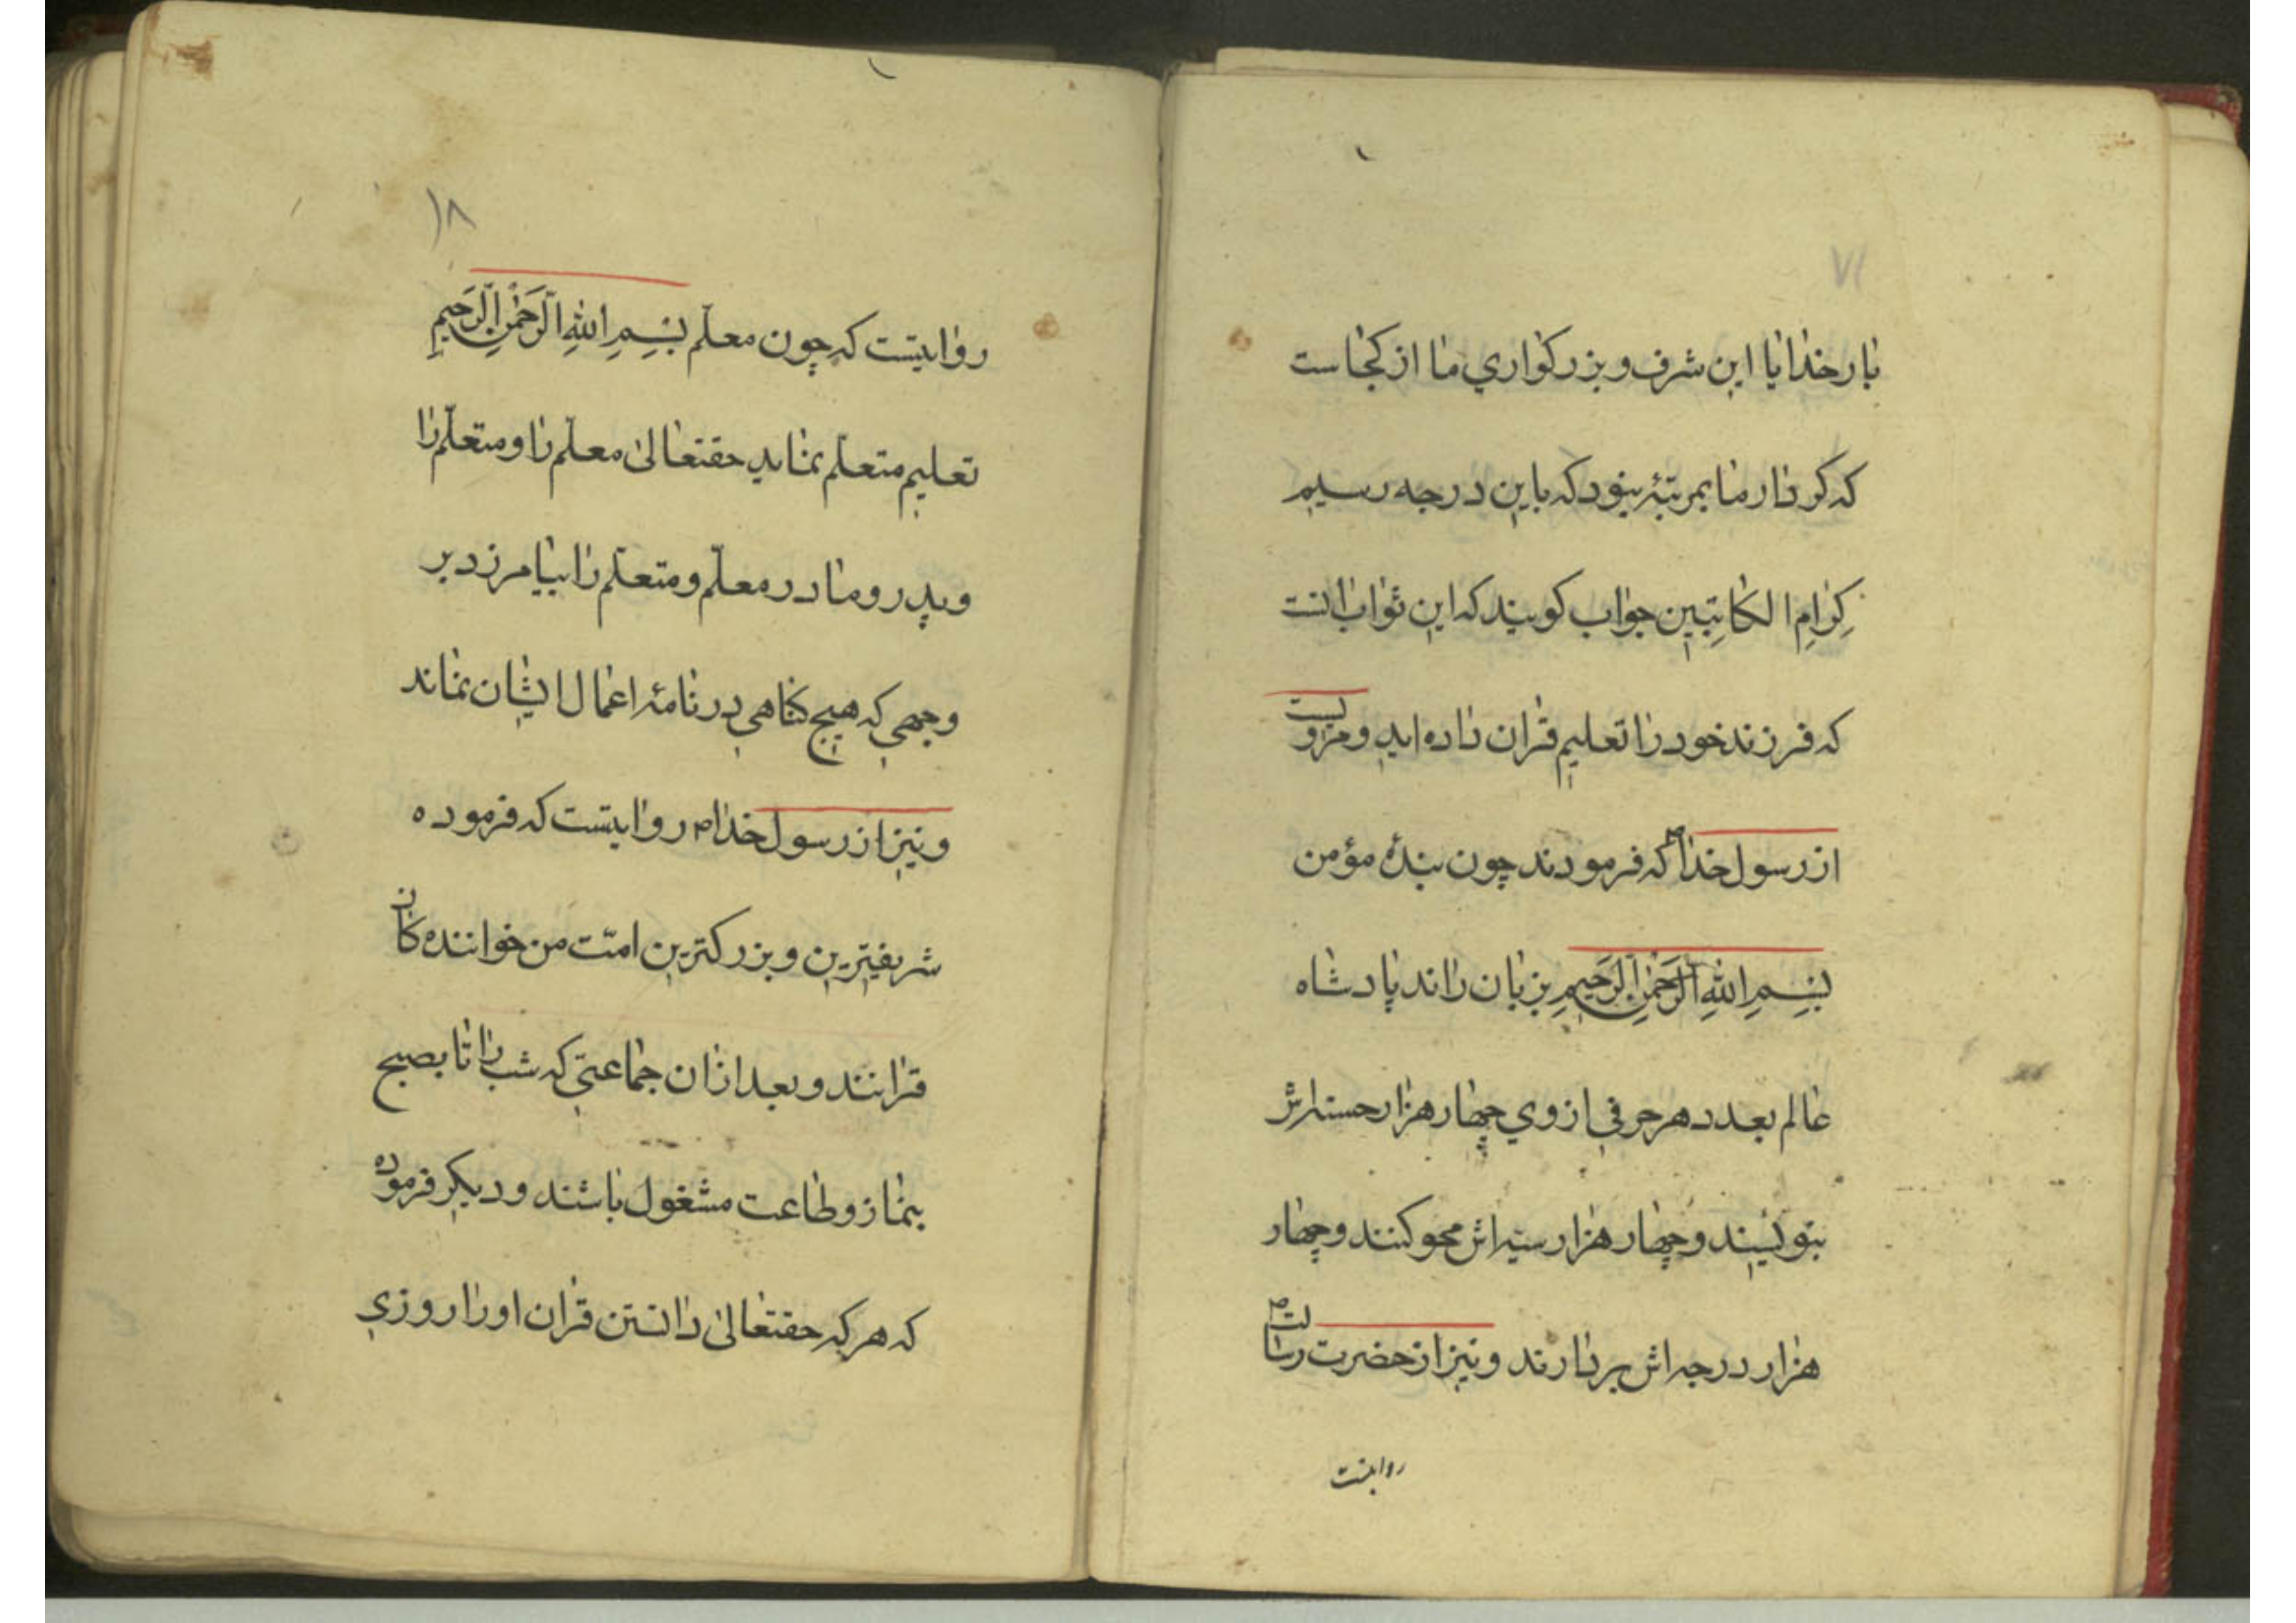 بار خدایا این شرف و بزرکواري ما از کجاست
که کردار ما بمرتبهٔ نبود که باین درجه رسیم
کِرٰامِ الکٰاتِبین جواب کویند که این ثواب انست
که فرزند خود را تعلیم قران داده اید و مرویست
از رسول خدا ص که فرمودند چون بندهٔ مؤمن
بِسْمِ اللهِ الرَّحْمٰنِ الرَّحیمِ بزبان راند پادشاه
عالم بعدد هر حرفي از وي چهار هزار حسنه اش
بنویسند و چهار هزار سیئه اش محو کنند و چهار
هزار درجه اش بردارند و نیز از حضرت رسالت ص
روایتست
۱۸
روایتست که چون معلّم بِسْمِ اللهِ الرَّحْمٰنِ الرَّحیمِ
تعلیم متعلّم نماید حقتعالیٰ معلّم را و متعلّم را
و پدر و مادر معلّم و متعلّم را بیامرزد بر
وجهي که هیچ کناهي در نامهٔ اعمال ایشان نماند
و نیز از رسول خدا ص روایتست که فرموده
شریفترین و بزرکترین امّت من خوانندەکان
قرانند و بعد ازان جماعتي که شب را تا بصبح
بنماز و طاعت مشغول باشند و دیکر فرموده
که هر که حقتعالیٰ دانستن قران او را روزي